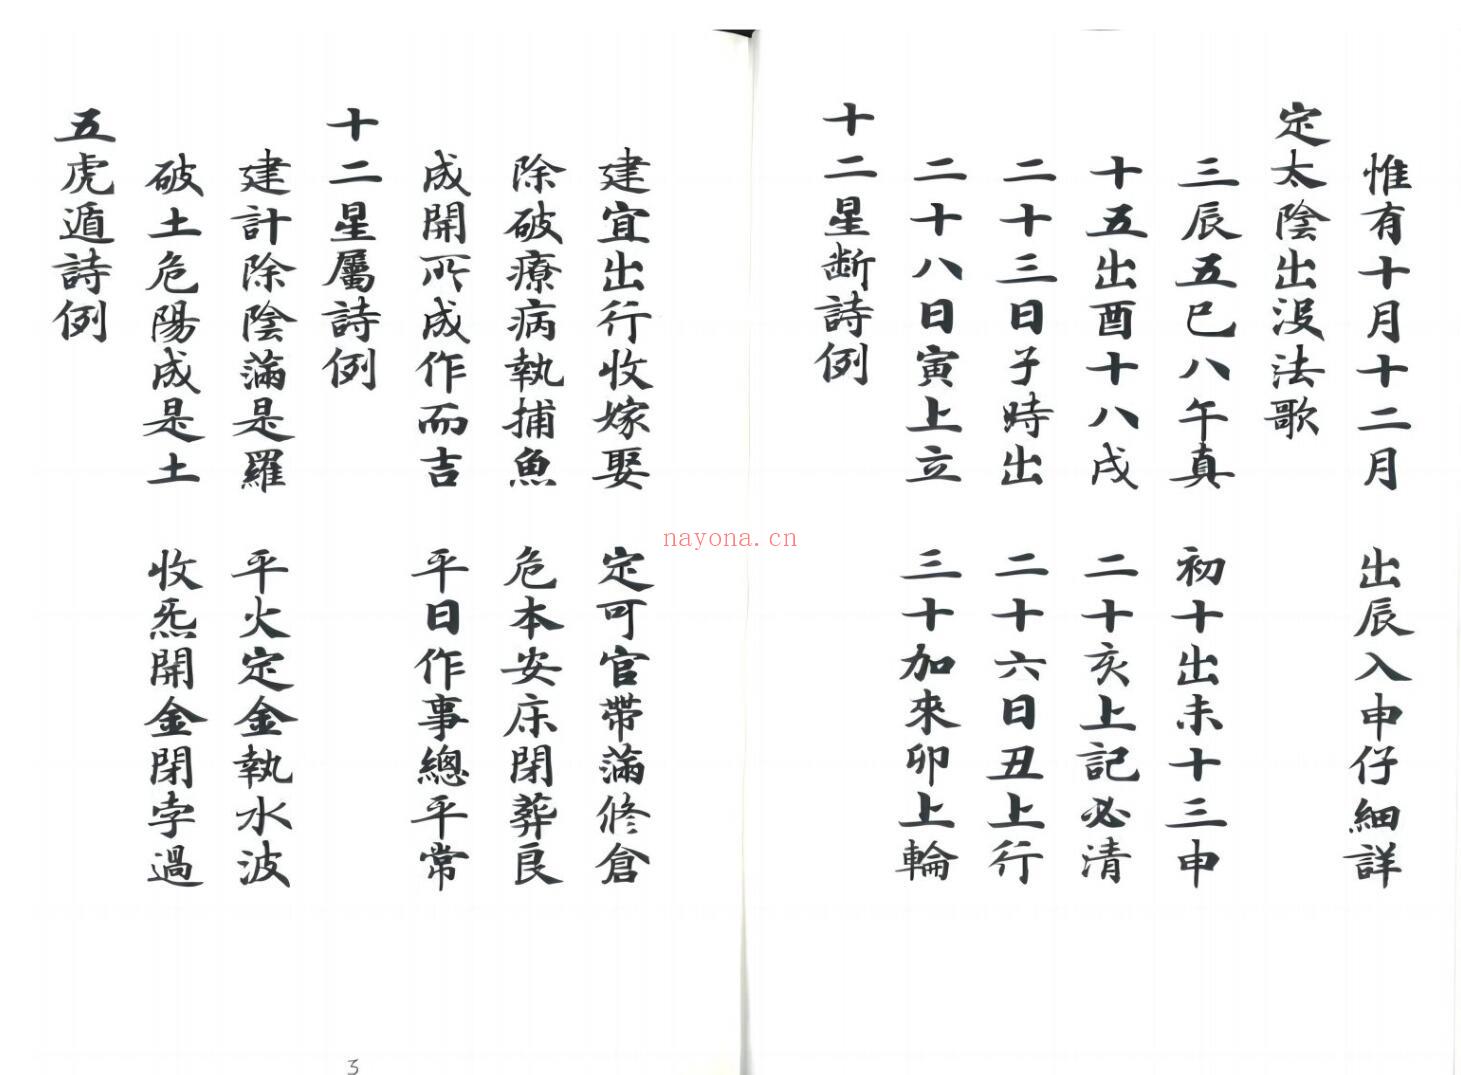 惟有十月十二月　出辰入申仔細詳
定太陰出沒法歌
三辰五巳八午真　初十出未十三申
十五出酉十八戌　二十亥上記必清
二十三日子時出　二十六日丑上行
二十八日寅上立　三十加來卯上輪
十二星斷詩例
建宜出行收嫁娶　定可官帶滿修倉
除破療病執捕魚　危本安床閉葬良
成開所成作而吉　平日作事總平常
十二星屬詩例
建計除陰滿是羅　平火定金執水波
破土危陽成是土　收炁開金閉孛過
五虎遁詩例
nayona.cn
3